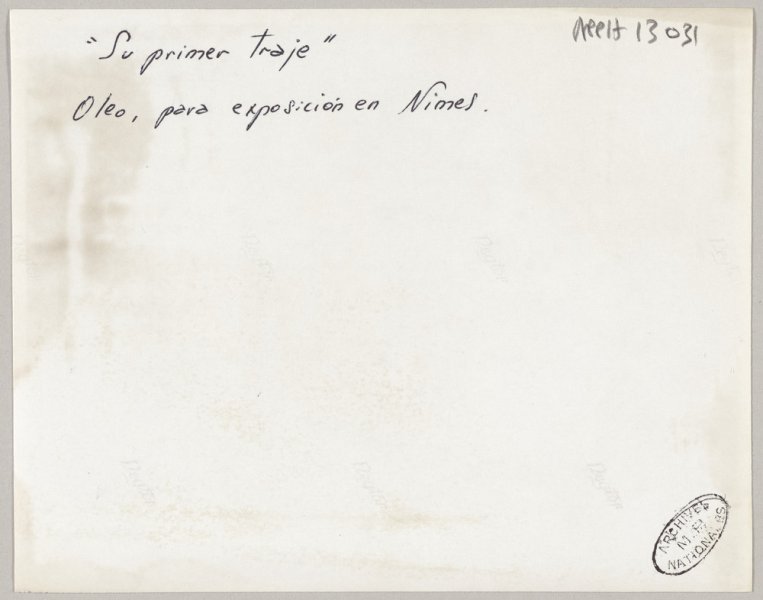 "Su primer traje"
Oleo, para exposición en Nimes.
13 031
ARCHIVES
NATIONALES